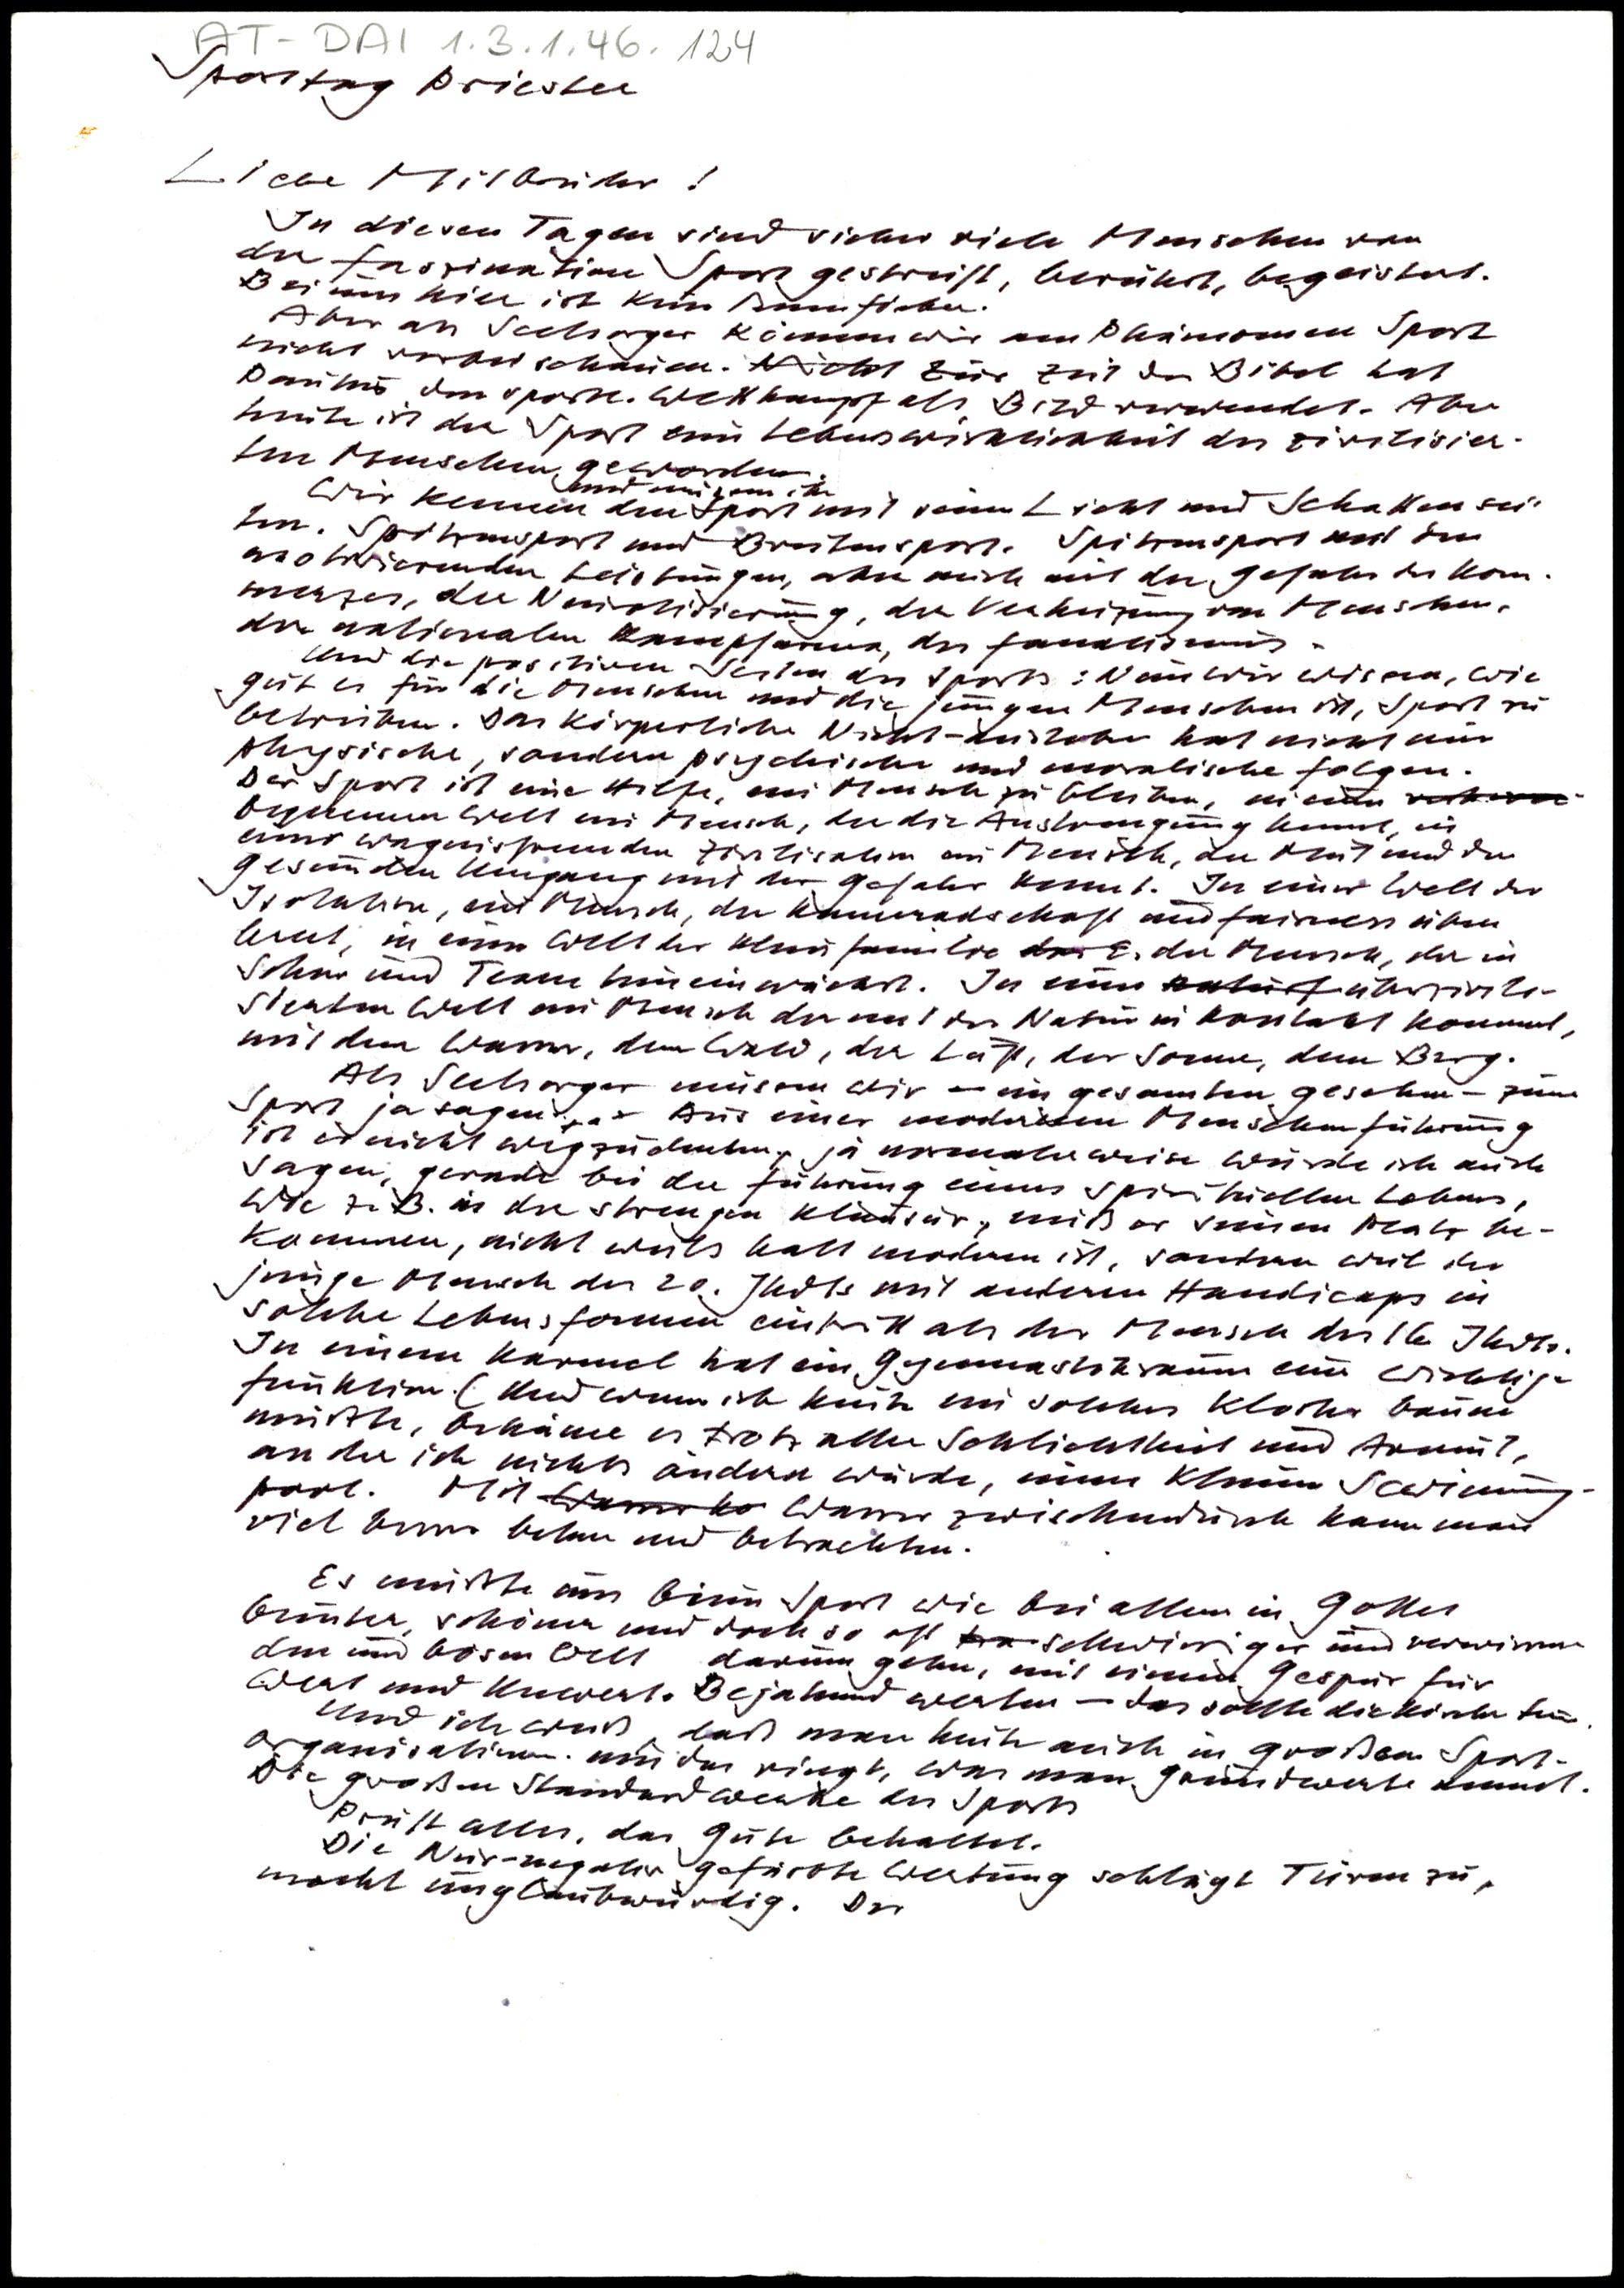 AT-DAI 1.3.1.46.124
Sporttag Priester
Liebe Mitbrüder!
In diesen Tagen sind sicher viele Menschen von
der Faszination Sport gestreift, berührt, begeistert.
Bei uns hier ist kein Rennfieber.
Aber als Seelsorger können wir am Phänomen Sport
nicht vorbeischauen. Nicht Zur Zeit der Bibel hat
Paulus den sportl. Wettkampf als Bild verwendet. Aber
heute ist der Sport eine Lebenswirklichkeit des zivilisier-
ten Menschen geworden.
Wir kennen den Sport mit seinen Licht und Schattensei-
ten. Spitzensport und Breitensport. Spitzensport mit den
motivierenden Leistungen, aber auch mit der Gefahr des Kom-
merzes, der Neurotisierung, der Verheizung von Menschen,
der nationalen Kampfarena, des Fanatismus.
Und die positiven Seiten des Sports: Nun wir wissen, wie
gut es für die Menschen und die jungen Menschen ist, Sport zu
betreiben. Das körperliche Nicht-austoben hat nicht nur
physische, sondern psychische und moralische Folgen.
Der Sport ist eine Hilfe, ein Mensch zu bleiben, in einer
bequemen Welt ein Mensch, der die Anstrengung kennt, in
einer wagnisfremden Zivilisation ein Mensch, der Mut und den
gesunden Umgang mit der Gefahr kennt. In einer Welt der
Isolation, ein Mensch, der Kameradschaft und Fairness üben
lernt, in einer Welt der Kleinfamilie der Mensch, der in
Schar und Team hineinwächst. In einer überzivili-
sierten Welt ein Mensch der mit der Natur in Kontakt kommt,
mit dem Wasser, dem Wald, der Luft, der Sonne, dem Berg.
Als Seelsorger müssen wir – im gesamten gesehen – zum
Sport ja sagen. Aus einer modernen Menschenführung
ist er nicht wegzudenken, ja normalerweise würde ich auch
sagen, gerade bei der Führung eines spirituellen Lebens,
wie z.B. in der strengen Klausur, muß er seinen Platz be-
kommen, nicht weils halt modern ist, sondern weil der
junge Mensch des 20. Jhdts mit anderen Handicaps in
solche Lebensformen eintritt als der Mensch des 16 Jhdts.
In einem Karmel hat ein Gymnastikraum eine wichtige
Funktion. (Und wenn ich heute ein solches Kloster bauen
müßte, bekäme es trotz aller Schlichtheit und Armut,
an der ich nichts ändern würde, einen kleinen Swimming-
pool. Mit Wasser zwischendurch kann man
viel besser beten und betrachten.
Es müßte uns beim Sport wie bei allem in Gottes
bunter, schöner und doch so oft schwieriger und verwirren-
den und bösen Welt darum gehn, mit einem Gespür für
Wert und Unwert. Bejahend werten – das sollte die Kirche tun.
Und ich weiß, daß man heute auch in großen Sport-
organisationen um das ringt, was man Grundwerte nennt.
Die großen Standardwerke des Sports
Prüft alles, das Gute behaltet.
Die Nur-negativ gefärbte Wertung schlägt Türen zu,
macht unglaubwürdig. Der